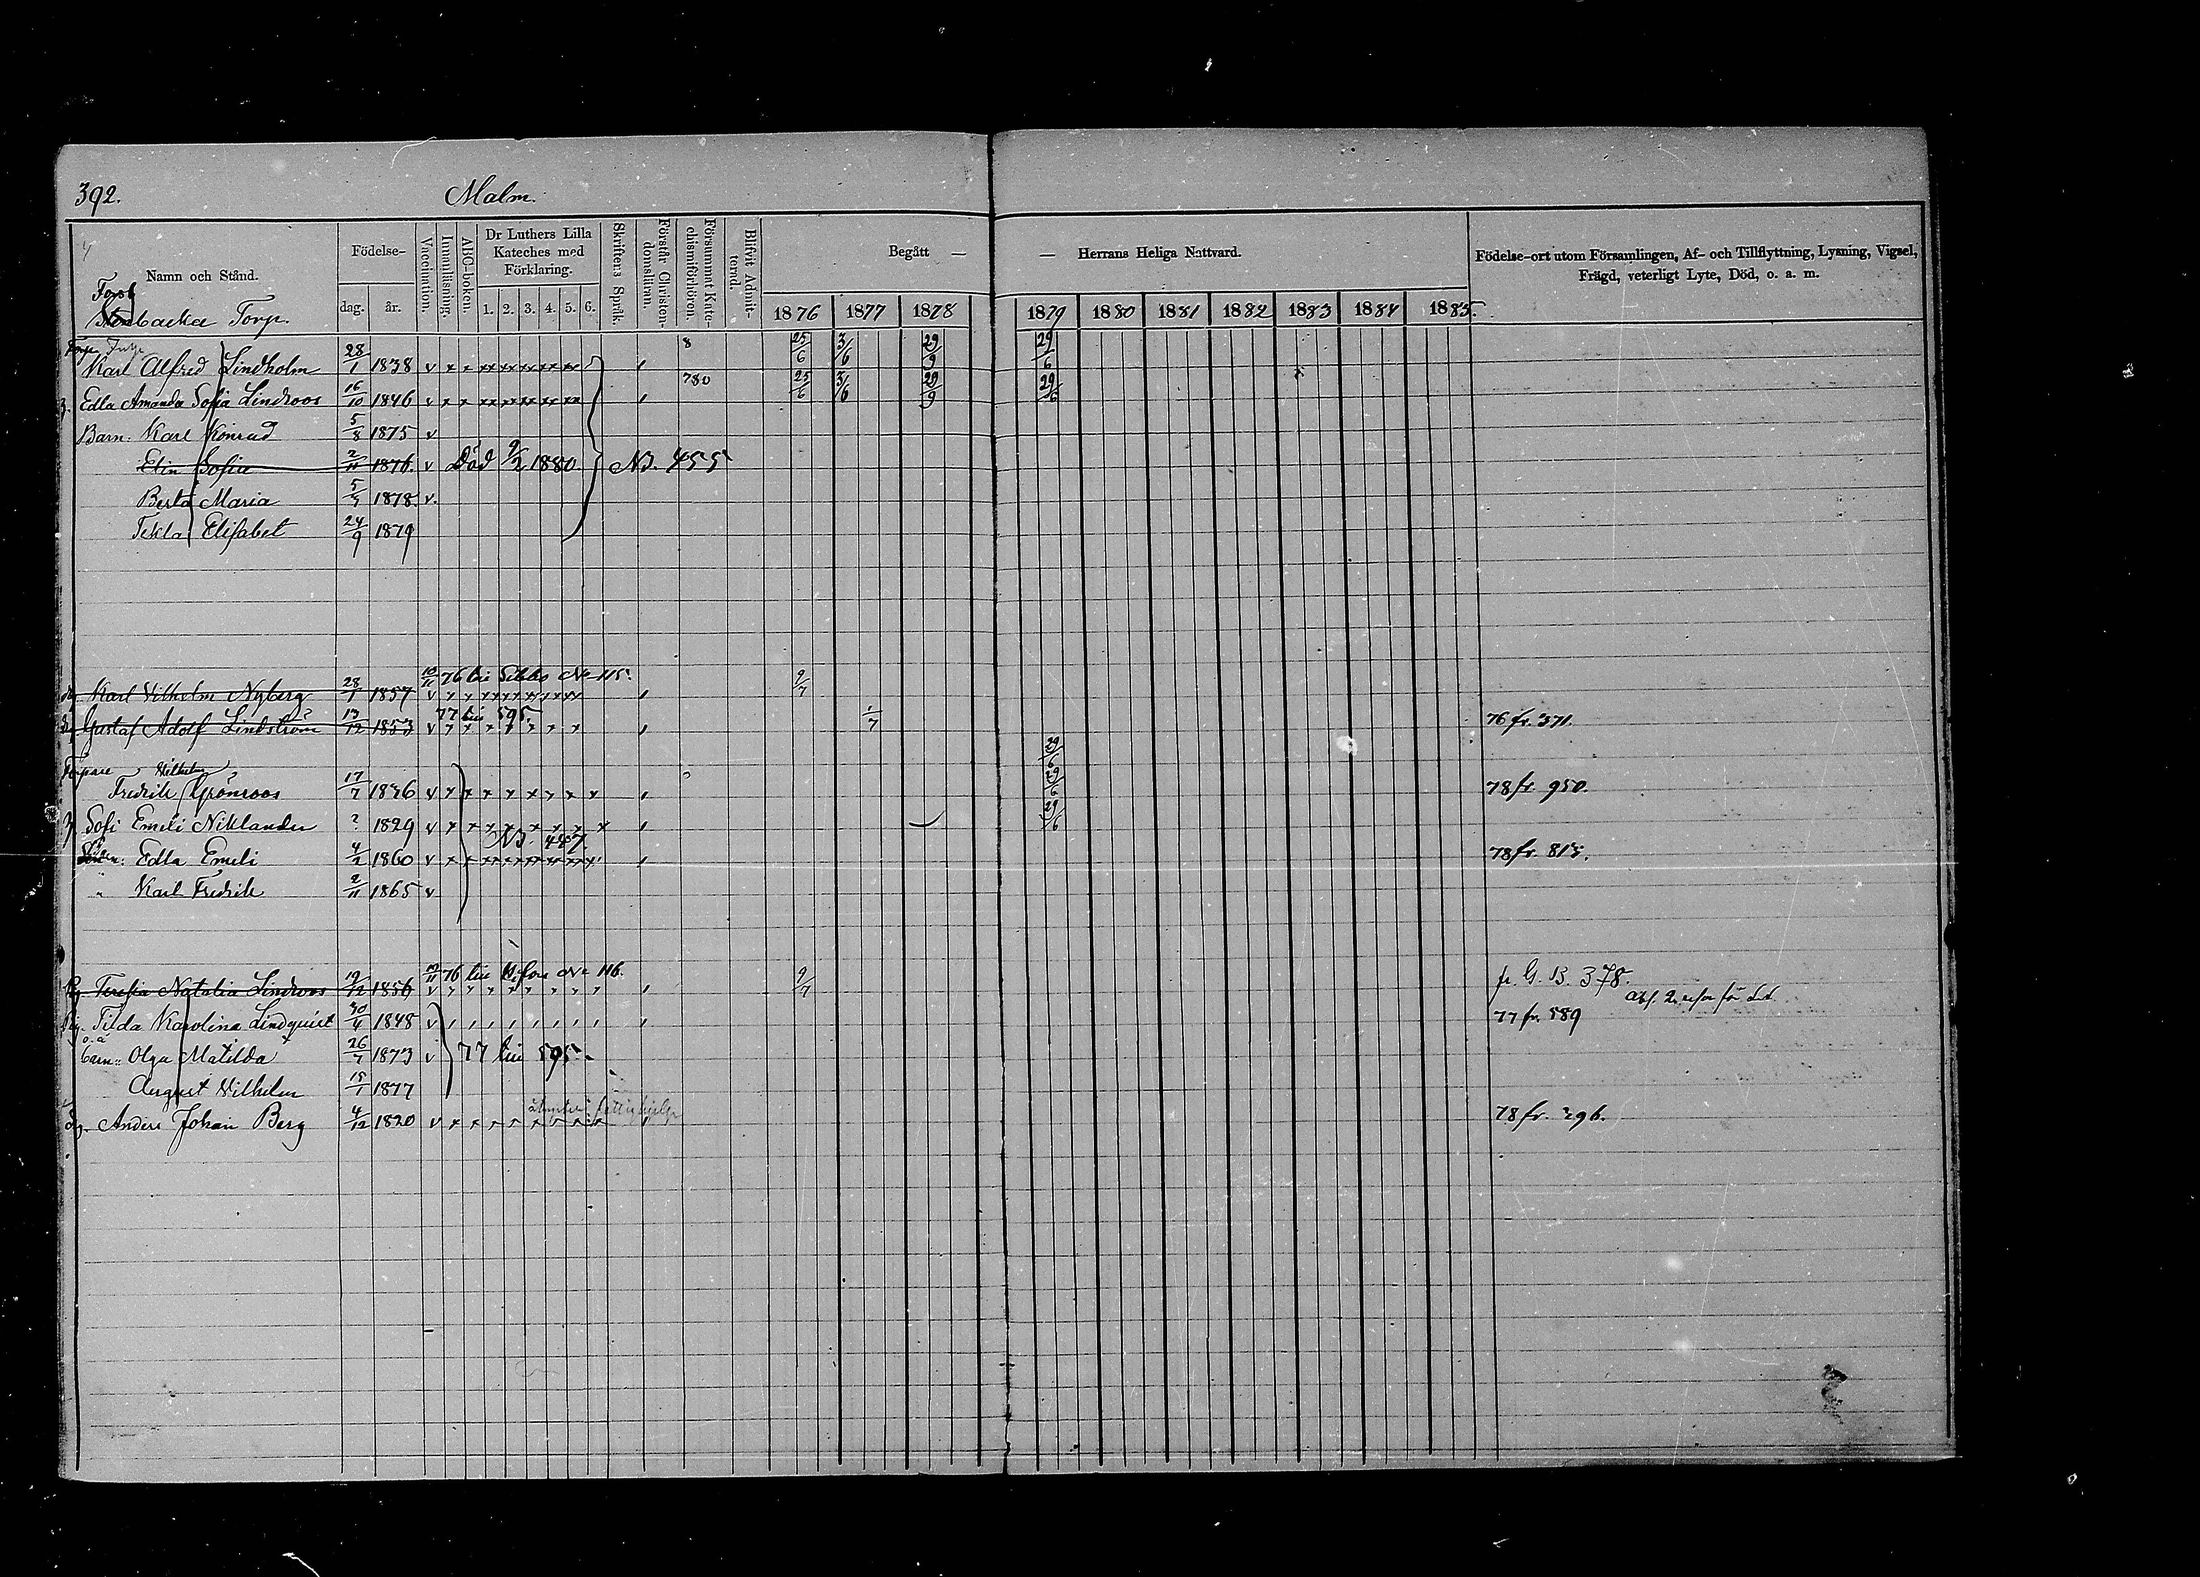 392.
Malm.
Namn och Stånd.
Födelse-
dag. år.
Vaccination.
Innanläsning.
ABC-boken.
Dr Luthers Lilla Kateches med Förklaring.
1. 2. 3. 4. 5. 6.
Skriftens Språk.
Förstår Christendomsläran.
Försummat Katechismiförhören.
Blifvit Admitterad.
Begått — — Herrans Heliga Nattvard.
1876 1877 1878 1879 1880 1881 1882 1883 1884 1885.
Födelse-ort utom Församlingen, Af- och Tillflyttning, Lysning, Vigsel, Frägd, veterligt Lyte, Död, o. a. m.
Torp.
Karl Alfred Lindholm 28/1 1838 v 8 25/6 3/6 29/9 29/6
Edla Amanda Sofia Lindroos 16/10 1846 v 780 25/6 3/6 29/9 29/6
Barn: Karl Konrad 5/8 1875 v
Elin Sofia 2/11 1876. v Död 9/2 1880 NB. 455
Berta Maria 1878 v.
Tekla Elisabet 24/9 1879
76 till Sibbo No 115.
Karl Vilhelm Nyberg 28/1 1857 v 9/7
77 till 595.
Gustaf Adolf Lindström 13/12 1853 v 1/7 76 fr. 371.
Vilhelm 29/6
Fredrik Grönroos 17/7 1836 v 29/6 78 fr. 950.
Sofi Emeli Niklander ? 1829 v 29/6
NB. 447
Edla Emeli 4/2 1860 v 78 fr. 813.
" Karl Fredrik 2/11 1865 v
76 till H:fors No 116.
Teresia Natalia Lindroos 19/12 1856 v 9/7 fr. G. B. 378.
Pig. Tilda Karolina Lindquist 30/4 1848 v 77 fr. 589
o. ä barn: Olga Matilda 26/7 1873 v 77 till 595.
August Vilhelm 15/1 1877
Anders Johan Berg 4/12 1820 v 78 fr. 296.